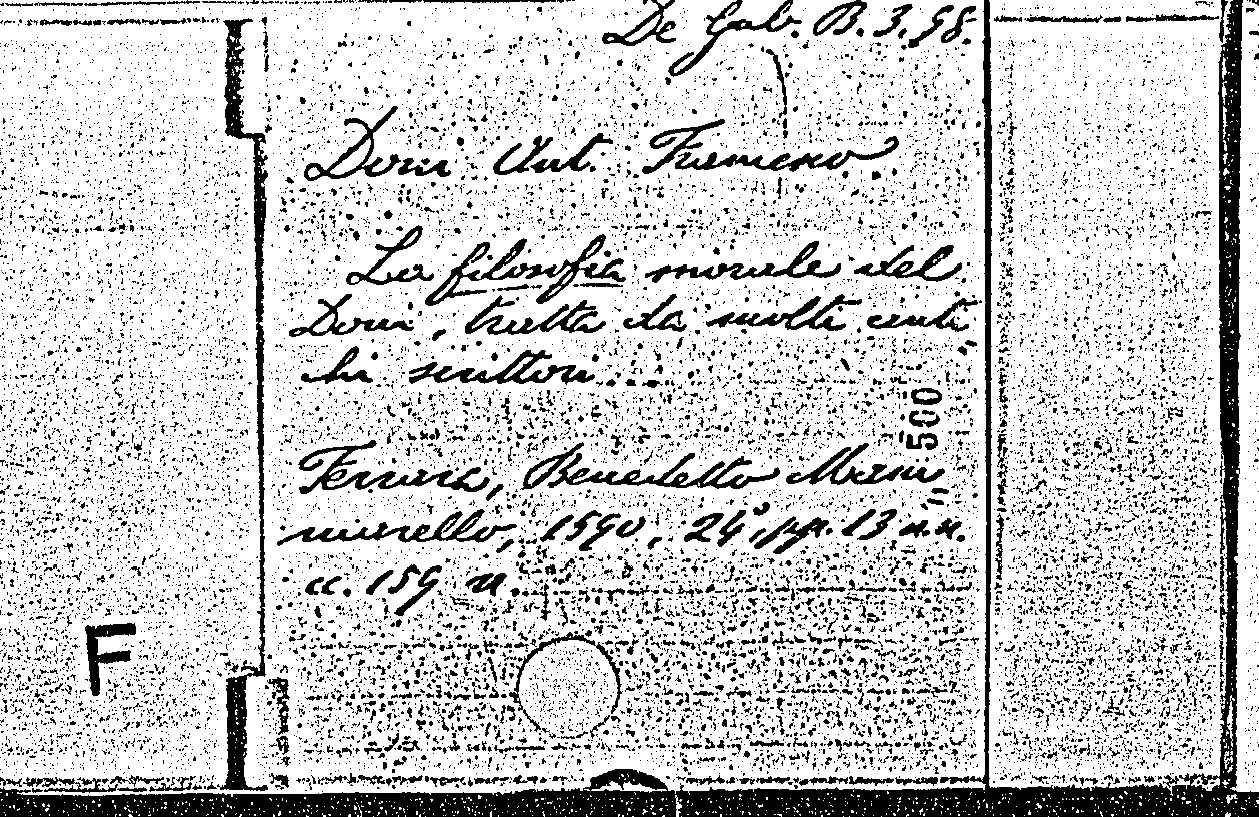 De Gub. B.3.98.
Doni Ant. Francesco
La filosofia morale del
Doni, tratta da molti anti
=
chi scrittori...
500
Ferrara, Benedetto Mam
=
marello, 1590, 24°, pp. 13 n.n.
cc. 159 n.
F